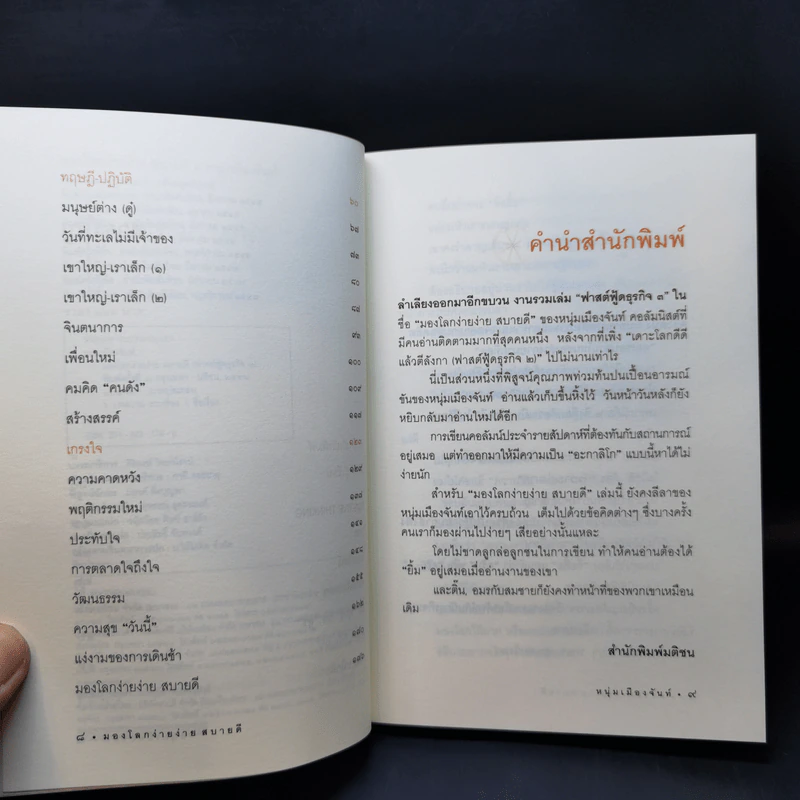 ทฤษฎี-ปฏิบัติ ๖๐
มนุษย์ต่าง (คู่)
วันที่ทะเลไม่มีเจ้าของ
เขาใหญ่-เราเล็ก (๑) ๘๐
เขาใหญ่-เราเล็ก (๒)
จินตนาการ
เพื่อนใหม่ ๑๐๐
คมคิด “คนดัง” ๑๐๙
สร้างสรรค์
เกรงใจ
ความคาดหวัง ๑๒๙
พฤติกรรมใหม่
ประทับใจ ๑๔๑
การตลาดใจถึงใจ
วัฒนธรรม ๑๕๕
ความสุข “วันนี้”
แง่งามของการเดินช้า
มองโลกง่ายง่าย สบายดี
๘ • มองโลกง่ายง่าย สบายดี
คำนำสำนักพิมพ์
ลำเลียงออกมาอีกขบวน งานรวมเล่ม “ฟาสต์ฟู้ดธุรกิจ ๓” ใน
ชื่อ “มองโลกง่ายง่าย สบายดี” ของหนุ่มเมืองจันท์ คอลัมนิสต์ที่
มีคนอ่านติดตามมากที่สุดคนหนึ่ง หลังจากที่เพิ่ง “เดาะโลกดีดี
แล้วตีลังกา (ฟาสต์ฟู้ดธุรกิจ ๒)” ไปไม่นานเท่าไร
นี่เป็นส่วนหนึ่งที่พิสูจน์คุณภาพท่วมท้นปนเปื้อนอารมณ์
ขันของหนุ่มเมืองจันท์ อ่านแล้วเก็บขึ้นหิ้งไว้ วันหน้าวันหลังก็ยัง
หยิบกลับมาอ่านใหม่ได้อีก
การเขียนคอลัมน์ประจำรายสัปดาห์ที่ต้องทันกับสถานการณ์
อยู่เสมอ แต่ทำออกมาให้มีความเป็น “อะกาลิโก” แบบนี้หาได้ไม่
ง่ายนัก
สำหรับ “มองโลกง่ายง่าย สบายดี” เล่มนี้ ยังคงลีลาของ
หนุ่มเมืองจันท์เอาไว้ครบถ้วน เต็มไปด้วยข้อคิดต่างๆ ซึ่งบางครั้ง
คนเราก็มองผ่านไปง่ายๆ เสียอย่างนั้นแหละ
โดยไม่ขาดลูกล่อลูกชนในการเขียน ทำให้คนอ่านต้องได้
“ยิ้ม” อยู่เสมอเมื่ออ่านงานของเขา
และติ๊น, อมรกับสมชายก็ยังคงทำหน้าที่ของพวกเขาเหมือน
เดิม
สำนักพิมพ์มติชน
หนุ่มเมืองจันท์ • ๙